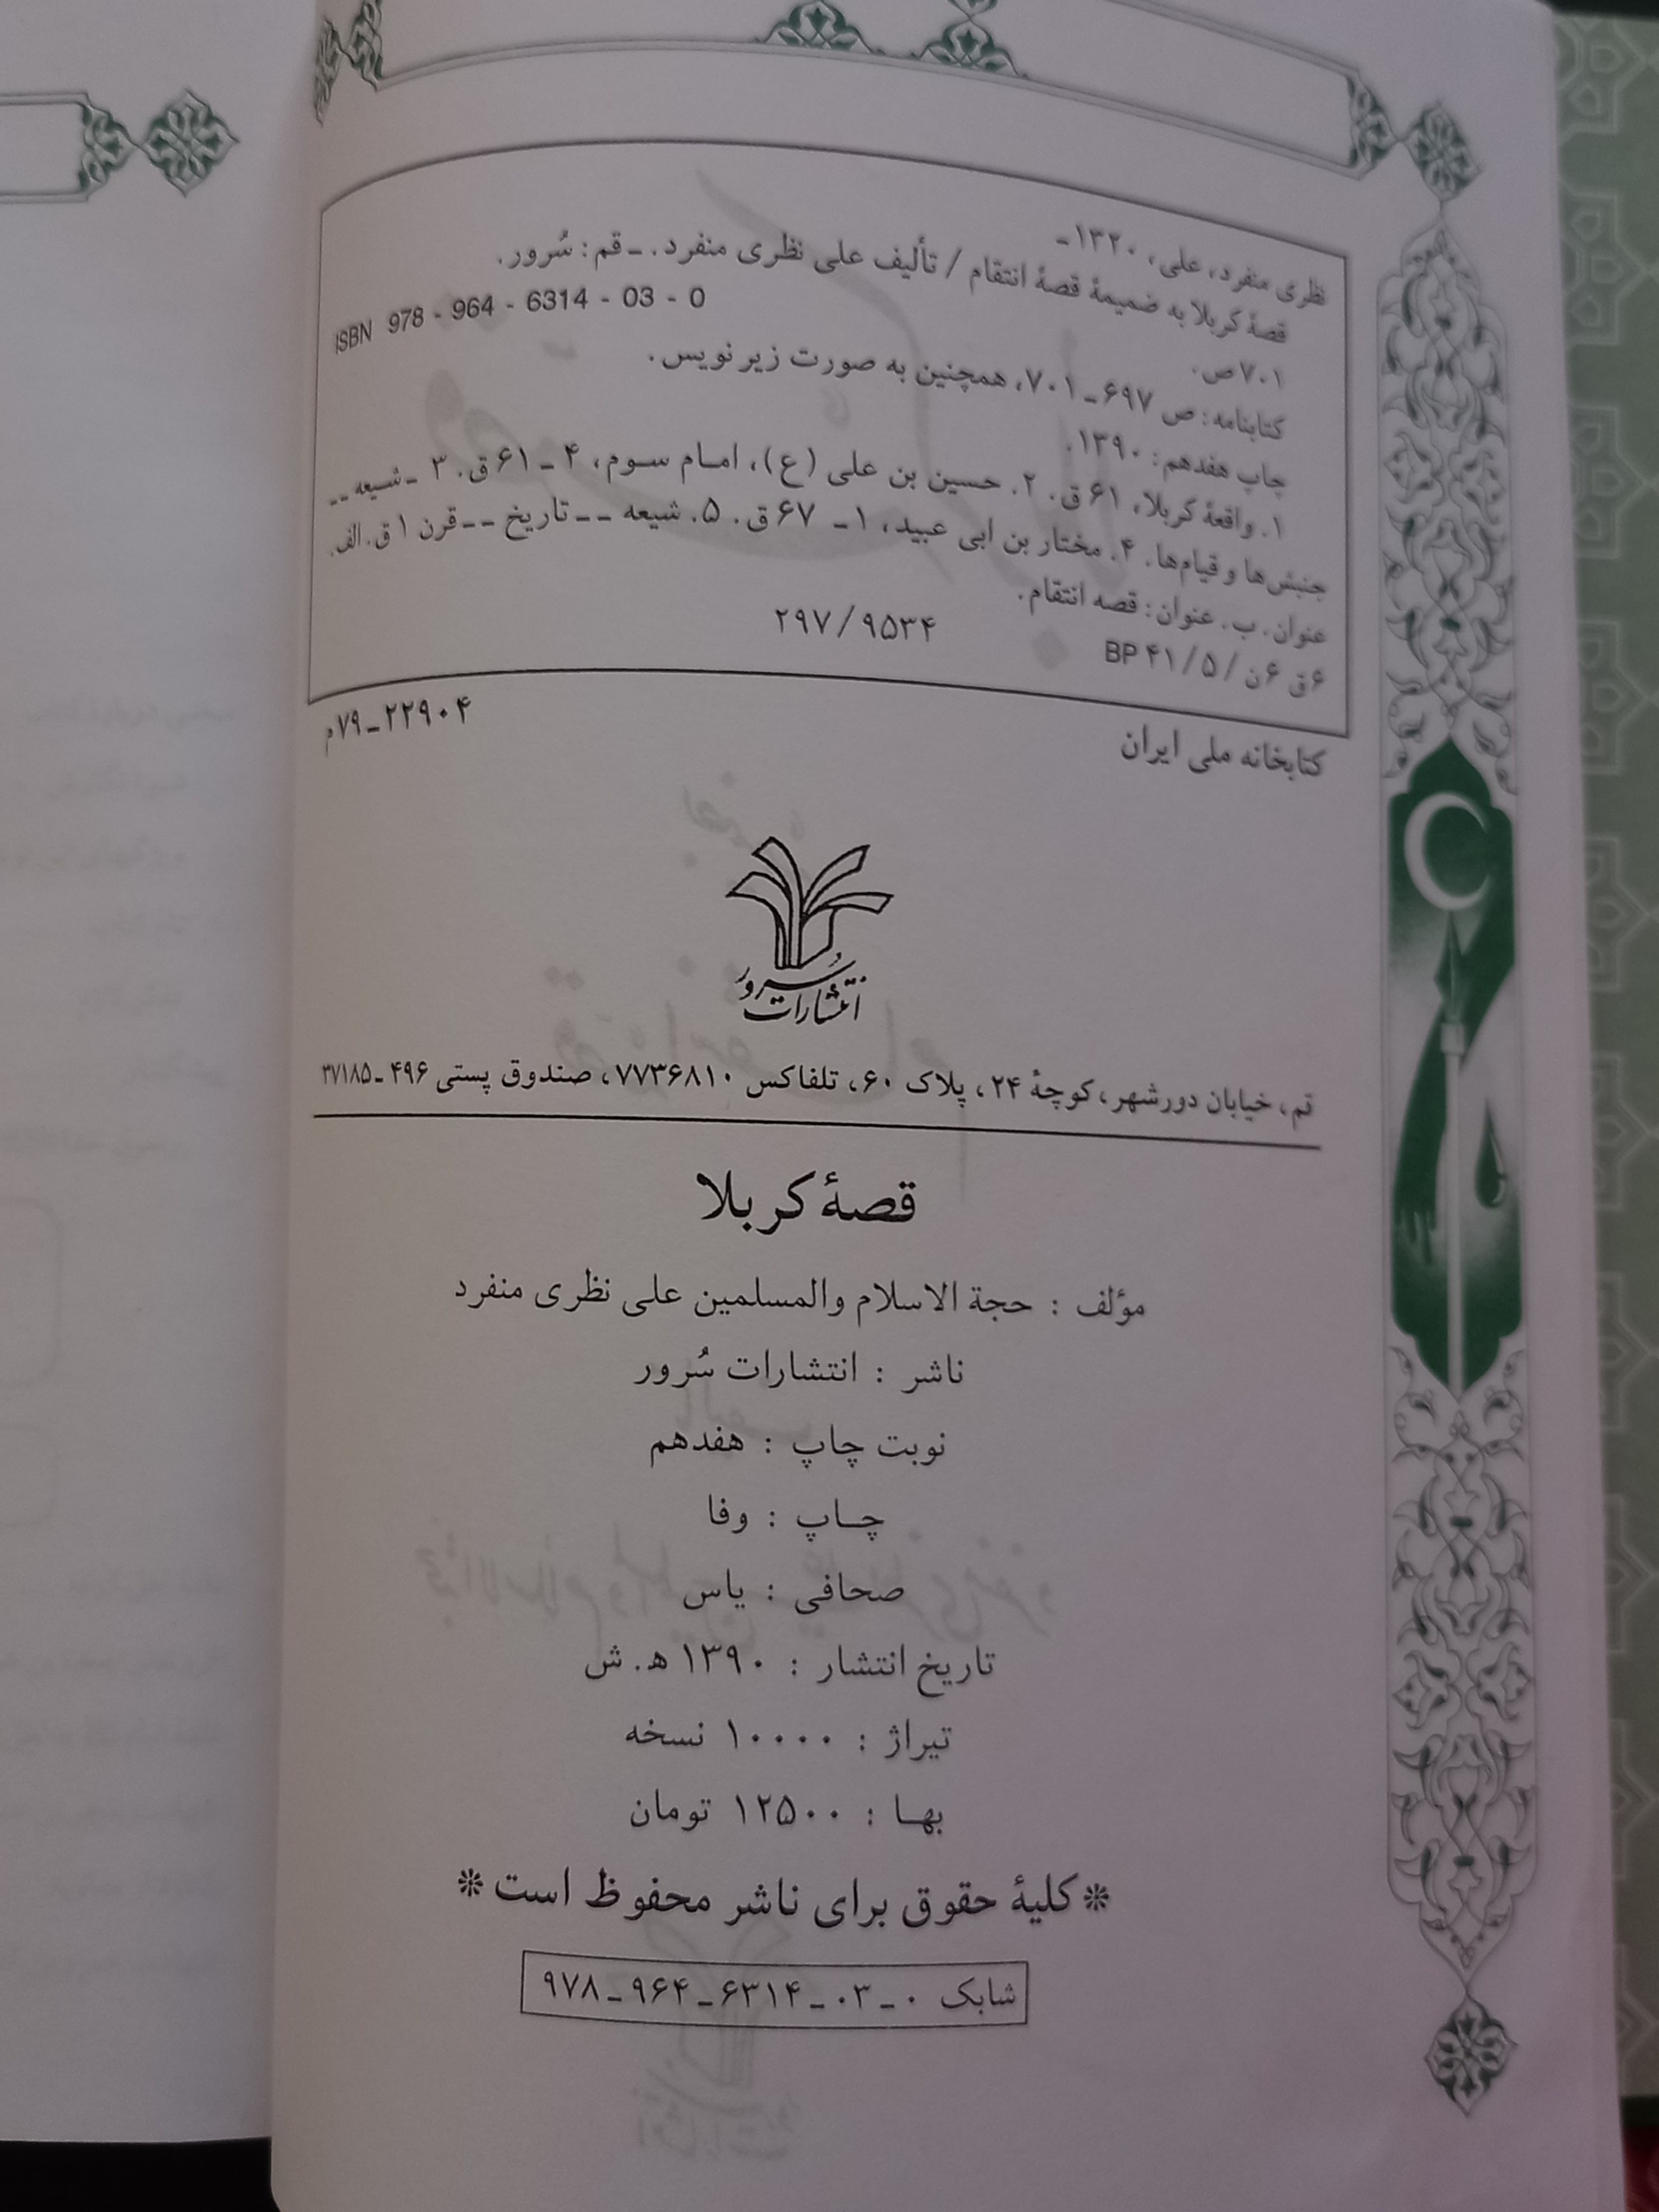 نظری منفرد، علی، ۱۳۲۰ـ
قصهٔ کربلا به ضمیمهٔ قصهٔ انتقام / تألیف علی نظری منفرد. ـ قم: سُرور.
۷۰۱ ص.
ISBN 978 - 964 - 6314 - 03 - 0
کتابنامه: ص ۶۹۷ ـ ۷۰۱، همچنین به صورت زیرنویس.
چاپ هفدهم: ۱۳۹۰.
۱. واقعهٔ کربلا، ۶۱ ق. ۲. حسین بن علی (ع)، امام سوم، ۴ ـ ۶۱ ق. ۳ ـ شیعه ـ ـ
جنبش‌ها و قیام‌ها. ۴. مختار بن ابی عبید، ۱ ـ ۶۷ ق. ۵. شیعه ـ ـ تاریخ ـ ـ قرن ۱ ق. الف.
عنوان. ب. عنوان: قصه انتقام.
۶ق ۶ن / ۵ / ۴۱ BP ۲۹۷/۹۵۳۴
کتابخانه ملی ایران ۲۲۹۰۴ ـ ۷۹م
انتشارات سُرور
قم، خیابان دورشهر، کوچهٔ ۲۴، پلاک ۶۰، تلفاکس ۷۷۳۶۸۱۰، صندوق پستی ۴۹۶ ـ ۳۷۱۸۵
قصهٔ کربلا
مؤلف : حجة الاسلام والمسلمین علی نظری منفرد
ناشر : انتشارات سُرور
نوبت چاپ : هفدهم
چاپ : وفا
صحافی : یاس
تاریخ انتشار : ۱۳۹۰ ه‍. ش
تیراژ : ۱۰۰۰۰ نسخه
بها : ۱۲۵۰۰ تومان
* کلیهٔ حقوق برای ناشر محفوظ است *
شابک ۰ ـ ۰۳ ـ ۶۳۱۴ ـ ۹۶۴ ـ ۹۷۸